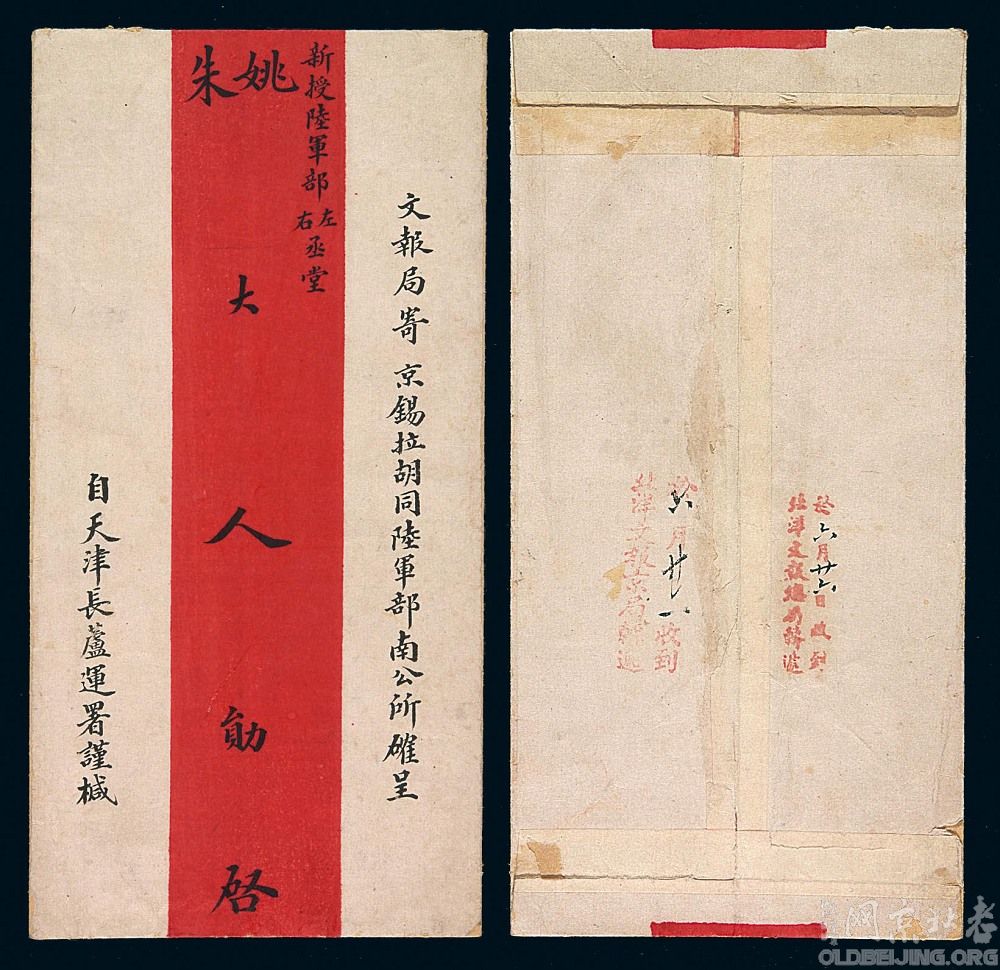 文報局寄 京錫拉胡同陸軍部南公所確呈
新授陸軍部左右丞堂
姚朱大人勛啓
自天津長蘆運署謹椷
於六月廿六日收到
北洋文報總局轉遞
於六月廿收到
北洋文報總局轉遞
老北京网
OLDBEIJING.ORG